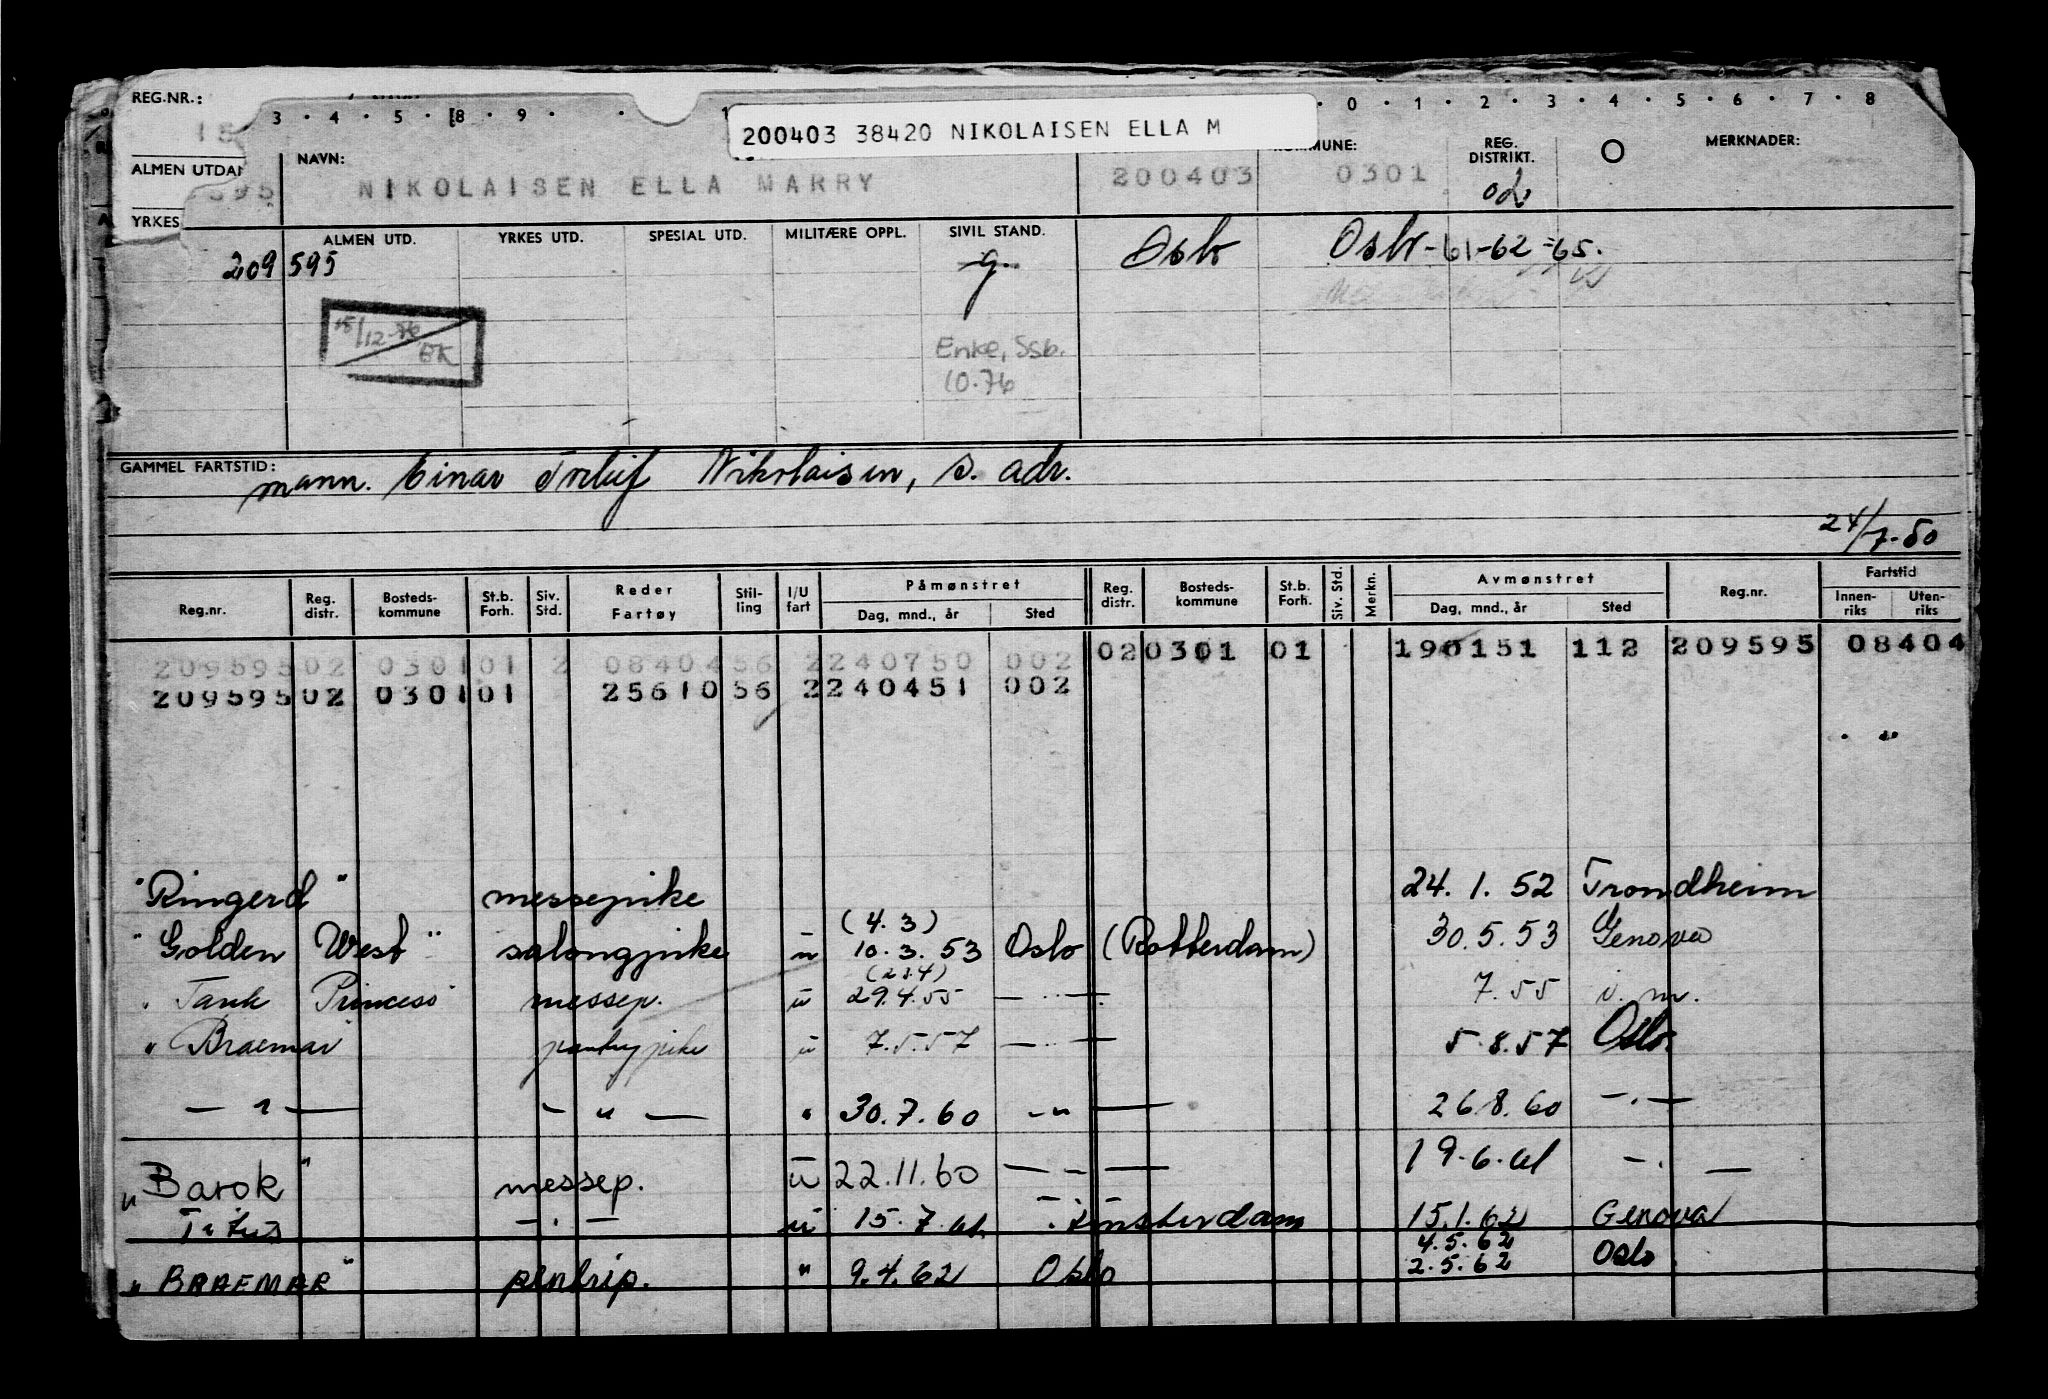 REG.NR.:
3 · 4 · 5 · 8 · 9 · · 1 · 0 · 1 · 2 · 3 · 4 · 5 · 6 · 7 · 8
200403 38420 NIKOLAISEN ELLA M
15
ALMEN UTDAN
NAVN:
KOMMUNE:
REG. DISTRIKT.
O
MERKNADER:
595
NIKOLAISEN ELLA MARRY
200403
0301
02
YRKES
ALMEN UTD.
YRKES UTD.
SPESIAL UTD.
MILITÆRE OPPL.
SIVIL STAND.
Oslo
Oslo-61-62-65.
209 595
g.
15/12-76 EK
Enke, Ssb.
10.76
GAMMEL FARTSTID:
mann. Einar Torleif Nikolaisen, s. adr.
24/7-50
Reg.nr. Reg. distr. Bosteds-kommune St.b. Forh. Siv. Std. Reder Fartøy Stil-ling I/U fart Påmønstret Dag, mnd., år Sted Reg. distr. Bosteds-kommune St.b. Forh. Siv. Std. Merkn. Avmønstret Dag, mnd., år Sted Reg.nr. Fartstid Innen-riks Uten-riks
209595 02 0301 01 2 08404 56 2 240750 002 02 0301 01 190151 112 209595 08404
209595 02 0301 01 25610 56 2 240451 002
"Ringerd" messepike 24.1.52 Trondheim
(4.3)
"Golden West" salongpike u 10.3.53 Oslo (Rotterdam) 30.5.53 Genova
(23.4)
"Tank Princess" messep. u 29.4.55 — " — 7.55 i. m.
"Braemar pantrypike u 7.5.57 — " — 5.8.57 Oslo.
— " — — " — " 30.7.60 — " — 26.8.60 — " —
"Barok" messep. u 22.11.60 — " — 19.6.61 — " —
Titus — " — u 15.7.61 Amsterdam 15.1.62 Genova
4.5.62
"BRAEMAR" pentrip. " 9.4.62 Oslo 2.5.62 Oslo